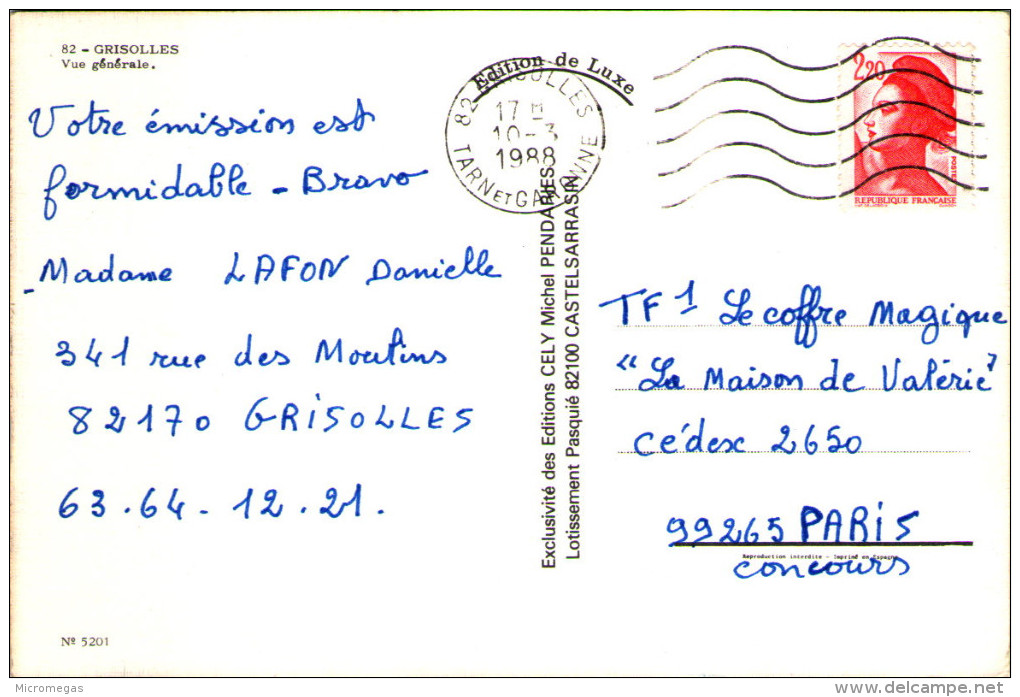 82 - GRISOLLES
Vue générale.
Edition de Luxe
82 GRISOLLES
17 H
10-3
1988
TARN ET GARONNE
2,20
POSTES
REPUBLIQUE FRANÇAISE
Votre émission est
formidable - Bravo
Madame LAFON Danielle
341 rue des Moulins
82170 GRISOLLES
63.64-12.21.
Exclusivité des Editions CELY Michel PENDARIES
Lotissement Pasquié 82100 CASTELSARRASIN
TF1 Le coffre Magique
"La Maison de Valérie"
Cédex 2650
99265 PARIS
Reproduction interdite - Imprimé en Espagne
concours
Nº 5201
Micromegas
delcampe.net